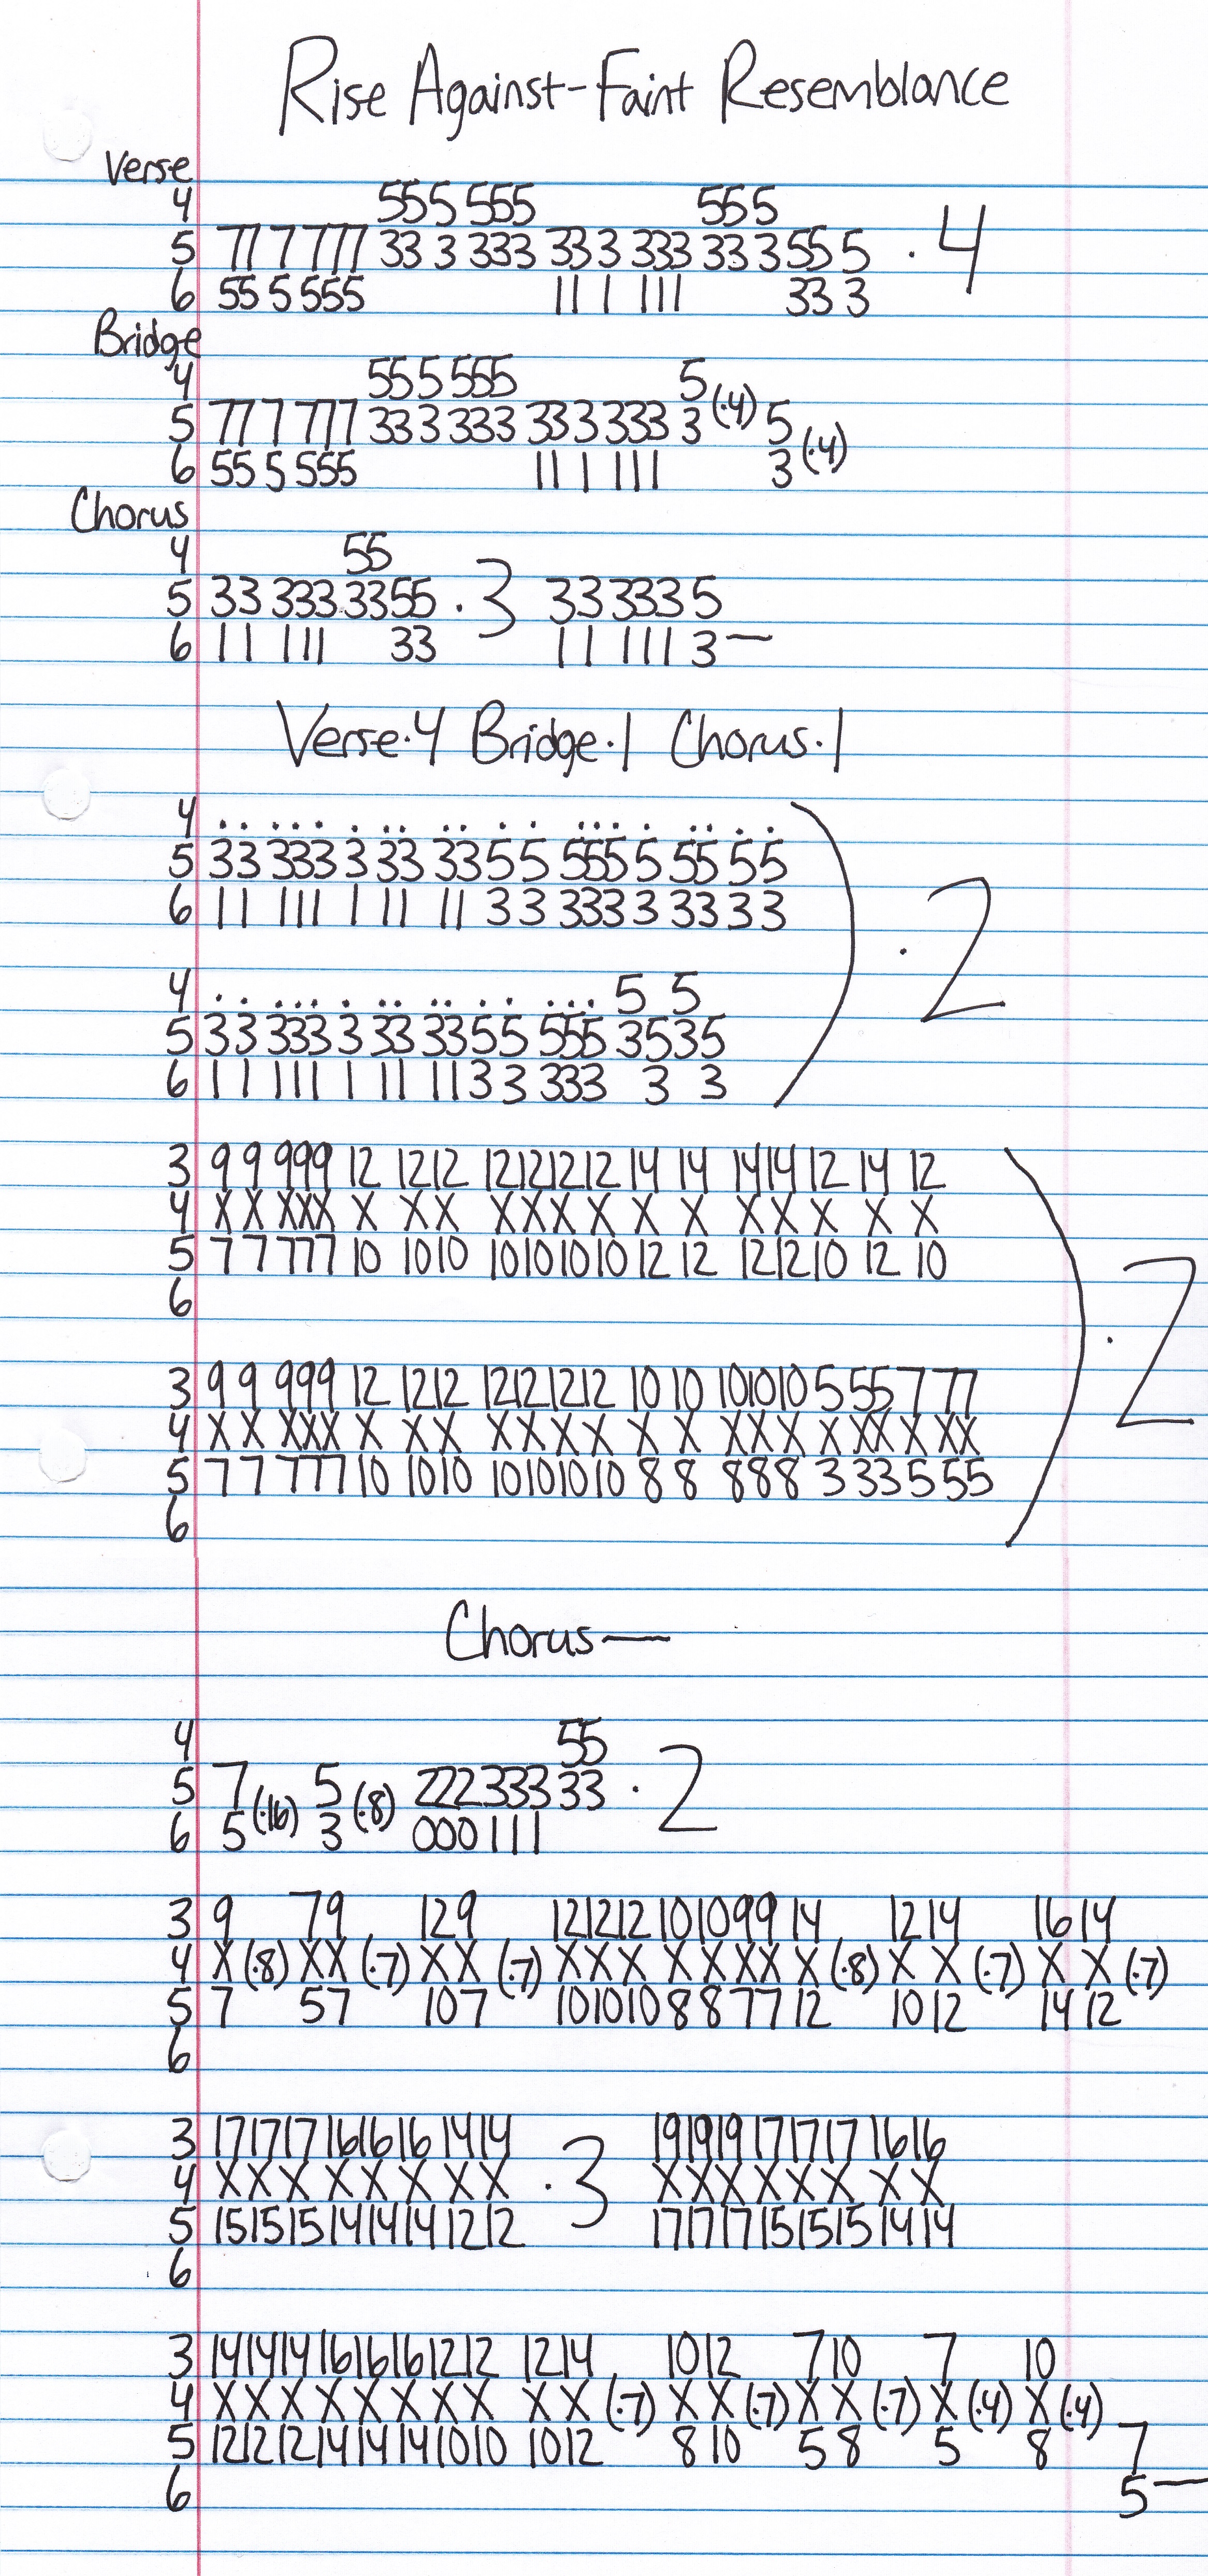 Rise Against-Faint Resemblance
Verse
4 555 555 555
5 77 7 777 33 3 333 33 3 333 33 3 55 5 · 4
6 55 5 555 11 1 111 33 3
Bridge
4 55 5 555 5
5 77 7 777 33 3 333 33 3 333 3 (·4) 5
6 55 5 555 11 1 111 3 (·4)
Chorus
4 55
5 33 333 33 55 · 3 33 333 5
6 11 111 33 11 111 3—
Verse·4 Bridge·1 Chorus·1
4 . . ... . .. .. . . ... . .. . .
5 33 333 3 33 33 5 5 555 5 55 5 5
6 11 111 1 11 11 3 3 333 3 33 3 3 ) · 2
4 . . ... . .. .. . . ... 5 5
5 33 333 3 33 33 55 555 3535
6 11 111 1 11 11 3 3 333 3 3
3 9 9 999 12 12 12 12 12 12 12 14 14 14 14 12 14 12
4 X X XXX X X X X X X X X X X X X X X
5 7 7 777 10 10 10 10 10 10 10 12 12 12 12 10 12 10
6
) · 2
3 9 9 999 12 12 12 12 12 12 12 10 10 10 10 10 5 55 7 77
4 X X XXX X X X X X X X X X X X X X XX X XX
5 7 7 777 10 10 10 10 10 10 10 8 8 8 8 8 3 33 5 55
6
Chorus—
4 55
5 7 5 222 333 33 · 2
6 5 (·16) 3 (·8) 000 111
3 9 79 12 9 12 12 12 10 10 9 9 14 12 14 16 14
4 X (·8) XX (·7) X X (·7) X X X X X X X X (·8) X X (·7) X X (·7)
5 7 57 10 7 10 10 10 8 8 7 7 12 10 12 14 12
6
3 17 17 17 16 16 16 14 14 19 19 19 17 17 17 16 16
4 X X X X X X X X · 3 X X X X X X X X
5 15 15 15 14 14 14 12 12 17 17 17 15 15 15 14 14
6
3 14 14 14 16 16 16 12 12 12 14 10 12 7 10 7 10
4 X X X X X X X X X X (·7) X X (·7) X X (·7) X (·4) X (·4)
5 12 12 12 14 14 14 10 10 10 12 8 10 5 8 5 8 7
6 5—